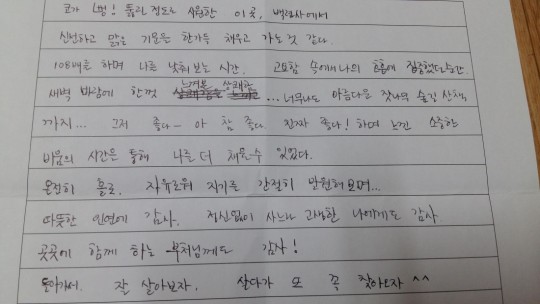 코가 뻥! 뚫릴 정도로 시원한 이 곳, 백련사에서
신선하고 맑은 기운을 한가득 채우고 가는 것 같다.
108배를 하며 나를 낮춰 보는 시간. 고요함 속에서 나의 호흡에 집중했던 순간.
새벽 바람에 한껏 느껴본 상쾌함 ... 너무나도 아름다운 잣나무 숲길 산책
까지... 그저 좋다- 아 참 좋다. 진짜 좋다! 하며 느낀 소중한
비움의 시간을 통해 나를 더 채울 수 있었다.
온전히 홀로. 자유로워지기를 간절히 바래보며...
따뜻한 인연에 감사. 정신없이 사느라 고생한 나에게도 감사.
곳곳에 함께 하는 부처님께도 감사!
돌아가서. 잘 살아보자. 살다가 또 꼭 찾아오자 ^^